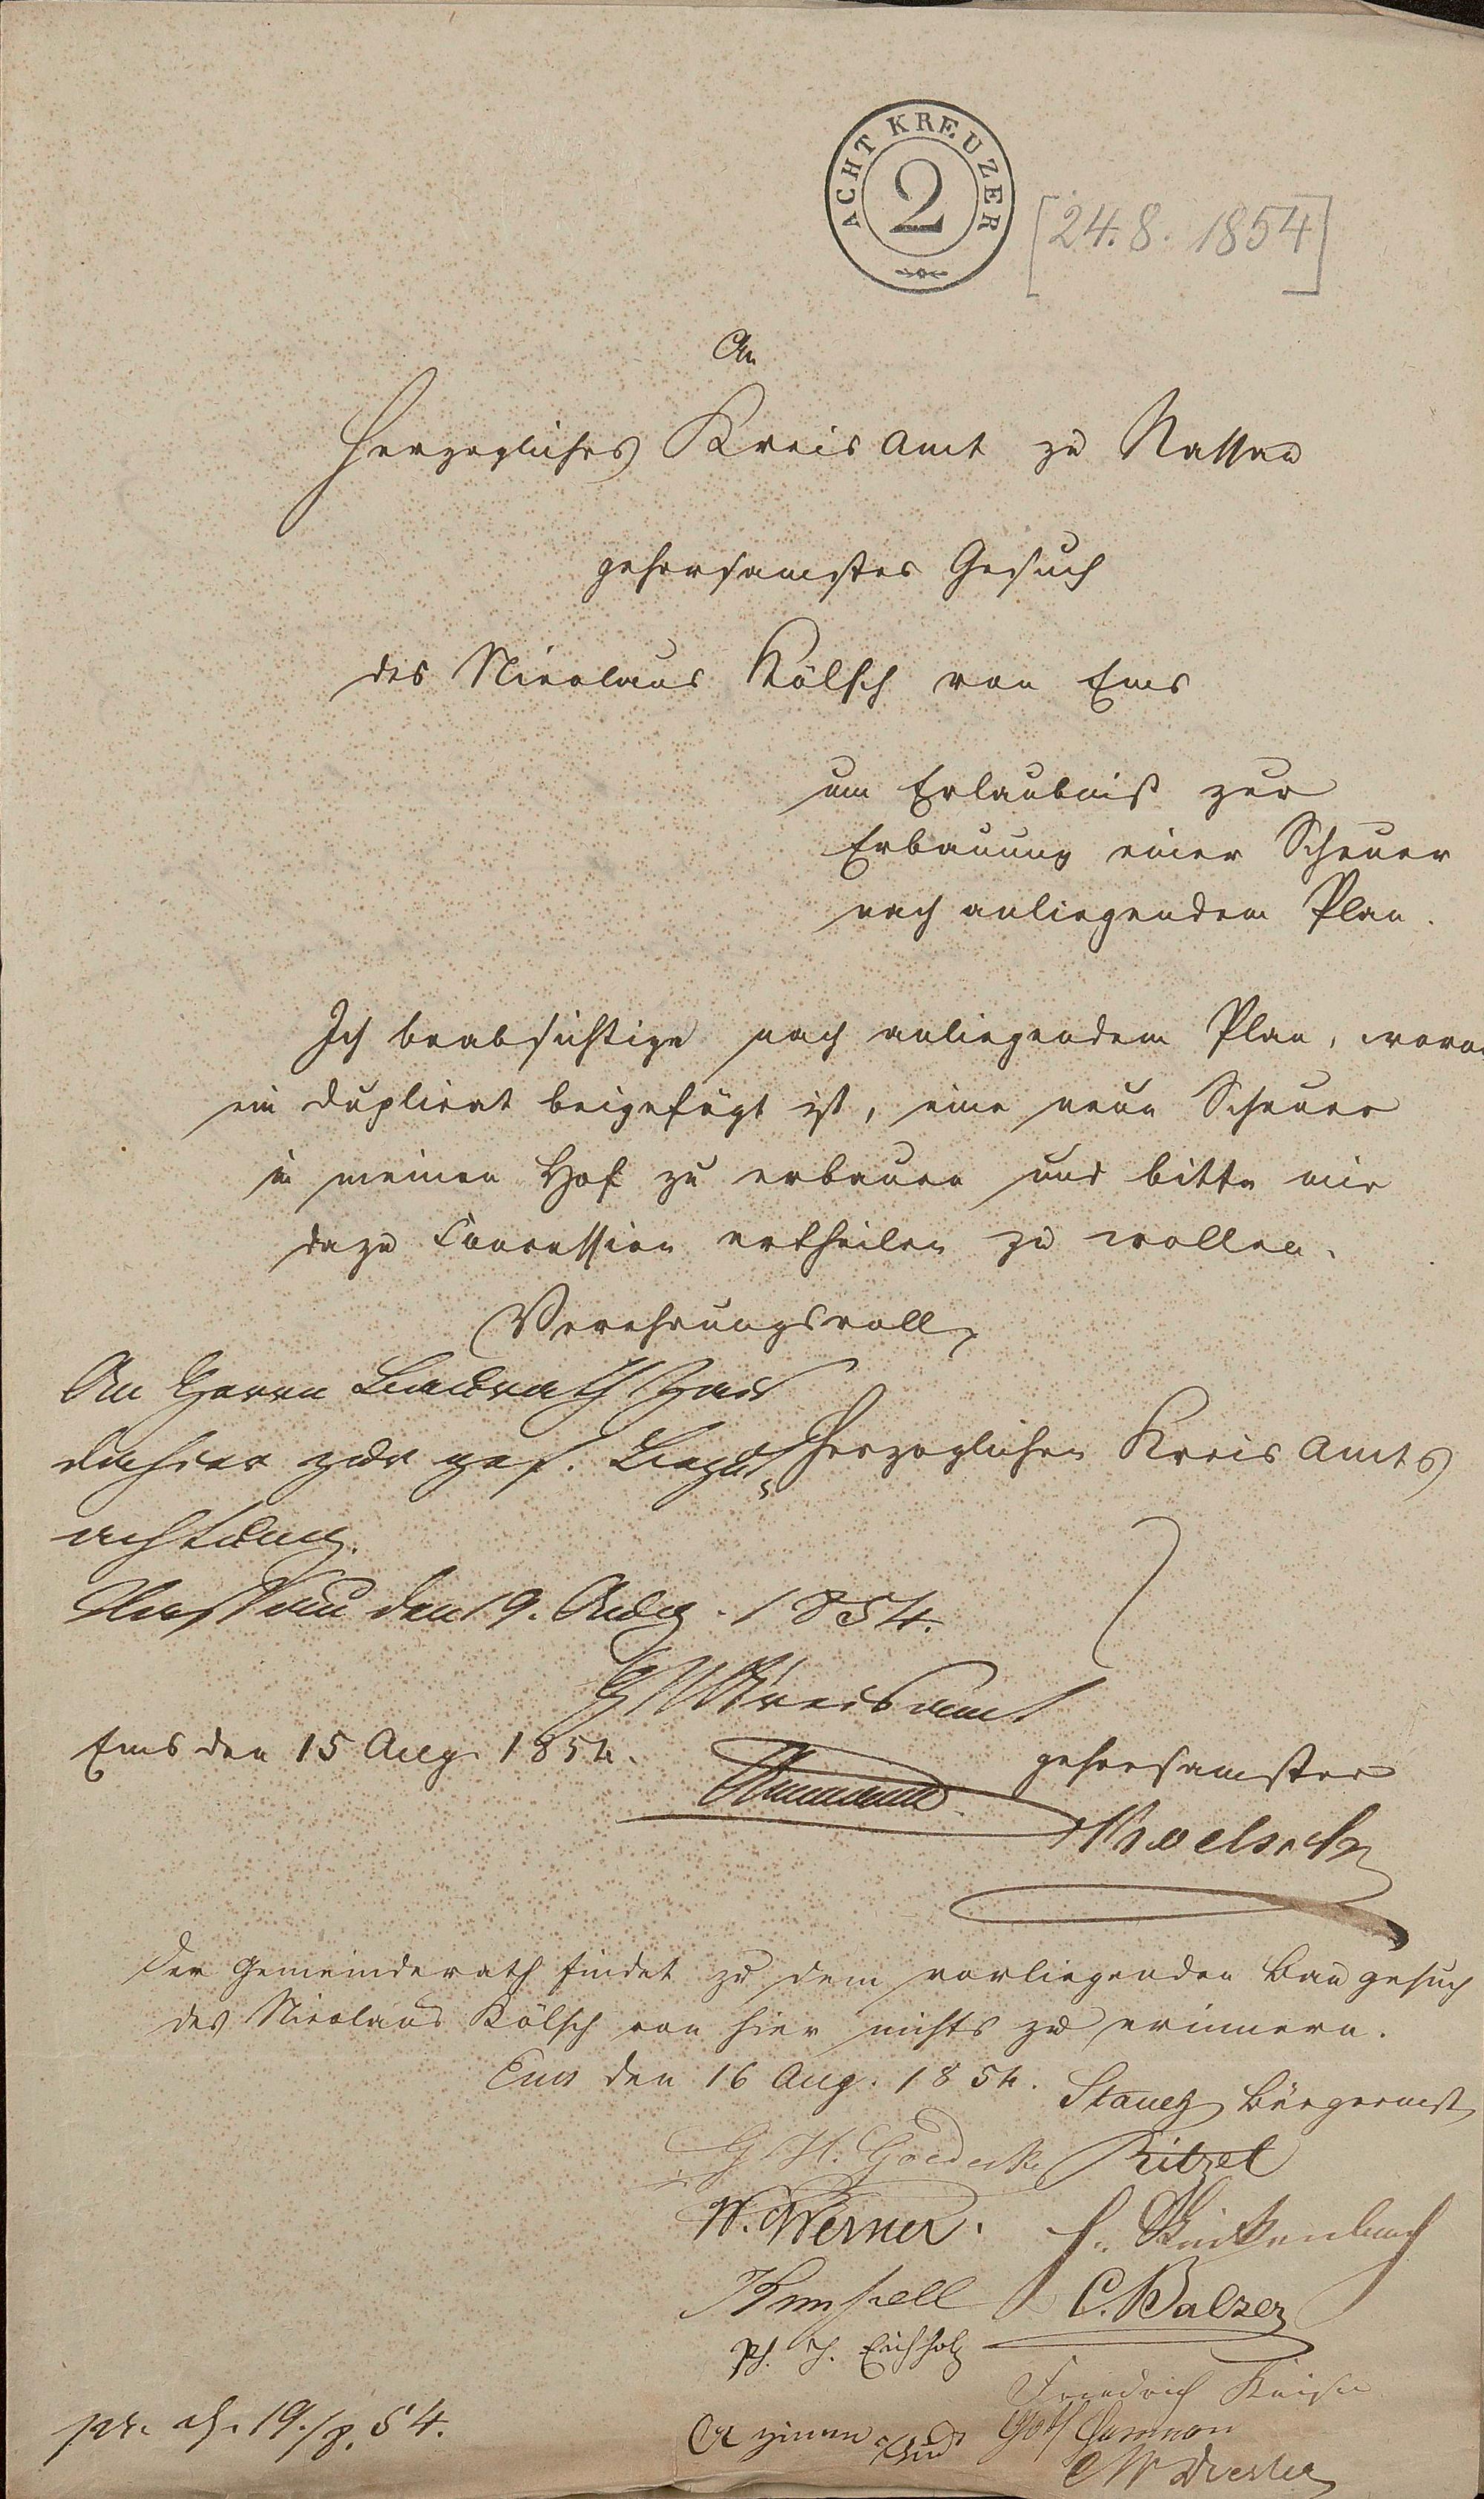 ACHT KREUZER
2
[24.8. 1854]
An
Herzogliches Kreisamt zu Nassau
gehorsamstes Gesuch
des Nicolaus Kölsch von Ems
um Erlaubniß zur
Erbauung einer Scheuer
nach anliegendem Plan.
Ich beabsichtige nach anliegendem Plan, wovon
ein Duplicat beigefügt ist, eine neue Scheuer
in meinen Hof zu erbauen und bitte mir
dazu Concession ertheilen zu wollen.
Verehrungsvoll
Herzoglichen Kreisamts
An Herrn Baurath
dahier zur gef. Begut-
achtung.
Nassau den 19. Aug. 1854.
H N Kreisamt
Ems den 15 Aug. 1854.
gehorsamster
N Koelsch
Der Gemeinderath findet zu dem vorliegenden Baugesuch
des Nicolaus Kölsch von hier nichts zu erinnern.
Ems den 16 Aug. 1854.
Bürgermst
G H. Goedecke Ritzel
W. Werner.
C. Balzer
Ph. J. Eichholz
Friedrich
pr. 19./8. 54.